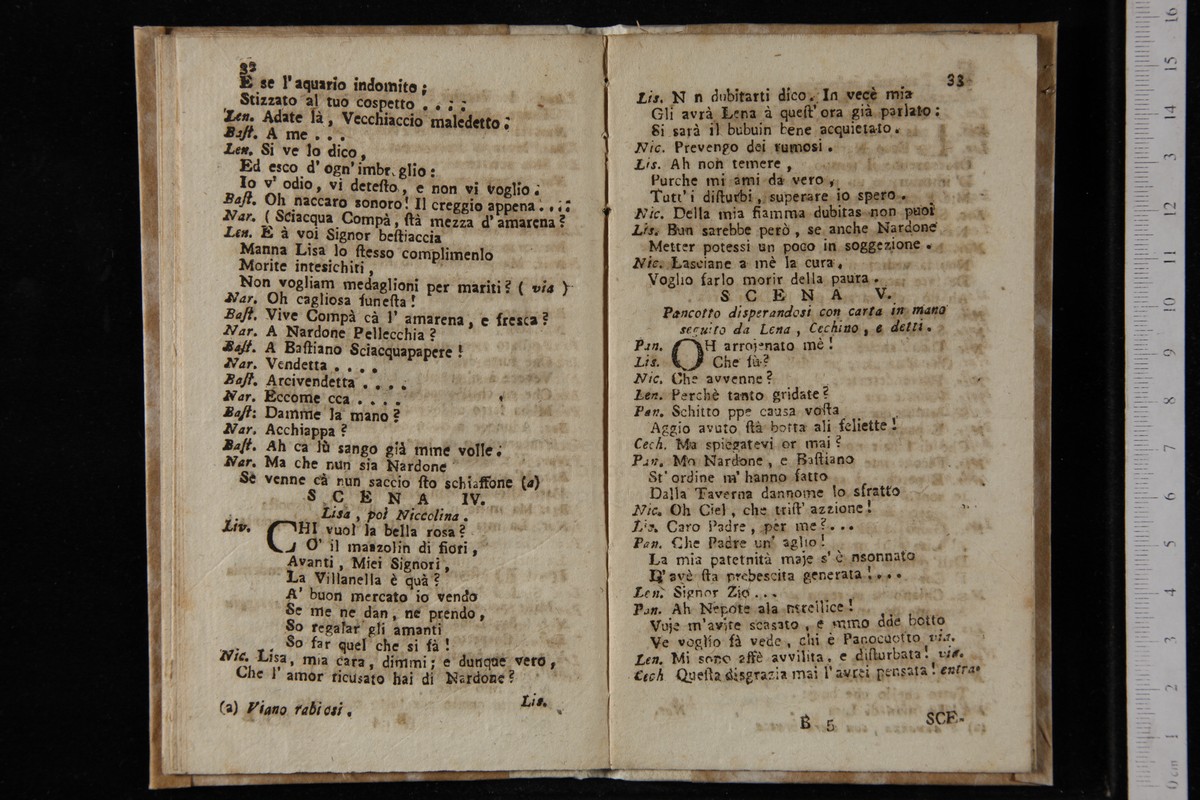 32
E se l' aquario indomito;
Stizzato al tuo cospetto . . ; ;
Len. Adate là, Vecchiaccio maledetto;
Baſt. A me . . .
Len. Si ve lo dico,
Ed esco d' ogn' imbr.glio:
Io v' odio, vi deteſto, e non vi voglio;
Baſt. Oh naccaro sonoro! Il creggio appena . . . ;
Nar. ( Sciacqua Compà, ſtà mezza d' amarena?
Len. E à voi Signor beſtiaccia
Manna Lisa lo ſtesso complimenlo
Morite intesichiti,
Non vogliam medaglioni per mariti? ( via )
Nar. Oh cagliosa funeſta!
Baſt. Vive Compà cà l' amarena, e fresca?
Nar. A Nardone Pellecchia?
Baſt. A Baſtiano Sciacquapapere!
Nar. Vendetta . . . .
Baſt. Arcivendetta . . . .
Nar. Eccome cca . . . .
Baſt: Damme la mano?
Nar. Acchiappa?
Baſt. Ah ca lù sango già mme volle;
Nar. Ma che nun sia Nardone
Sè venne cà nun saccio ſto schiaffone (a)
S C E N A IV.
Lisa, poi Niccolina.
Liv. CHI vuol la bella rosa?
O' il manzolin di fiori,
Avanti, Miei Signori,
La Villanella è quà?
A' buon mercato io vendo
Se me ne dan, ne prendo,
So regalar gli amanti
So far quel che si fà!
Nic. Lisa, mia cara, dimmi; e dunque vero,
Che l' amor ricusato hai di Nardone?
(a) Viano rabiosi.
Lis.
33
Lis. N n dubitarti dico. In vecè mia
Gli avrà Lena à queſt' ora già parlato:
Si sarà il bubuin bene acquietato.
Nic. Prevengo dei rumosi.
Lis. Ah non temere,
Purche mi ami da vero,
Tutt' i diſturbi, superare io spero.
Nic. Della mia fiamma dubitas non puoi
Lis. Bun sarebbe però, se anche Nardone
Metter potessi un poco in soggezione.
Nic. Lasciane a mè la cura,
Voglio farlo morir della paura.
S C E N A V.
Pancotto disperandosi con carta in mano
seguito da Lena, Cechino, e detti.
Pan. OH arrojenato mè!
Lis. Che fù?
Nic. Che avvenne?
Len. Perchè tanto gridate?
Pan. Schitto ppe causa voſta
Aggio avuto ſtà botta ali feliette!
Cech. Ma spiegatevi or mai?
Pan. Mo Nardone, e Baſtiano
St' ordine m' hanno fatto
Dalla Taverna dannome lo sfratto
Nic. Oh Ciel, che triſt' azzione!
Lis. Caro Padre, per me? . . .
Pan. Che Padre un' aglio!
La mia patetnità maje s' è nsonnato
D' avè ſta prebescita generata! . . .
Len. Signor Zio . . .
Pan. Ah Nepote ala
Vuje m' avite scasato, e mmo dde botto
Ve voglio fà vede, chi è Panocuotto via.
Len. Mi sono affè avvilita, e diſturbata! via.
Cech Queſta disgrazia mai l' avrei pensata! entra
B 5
SCE-